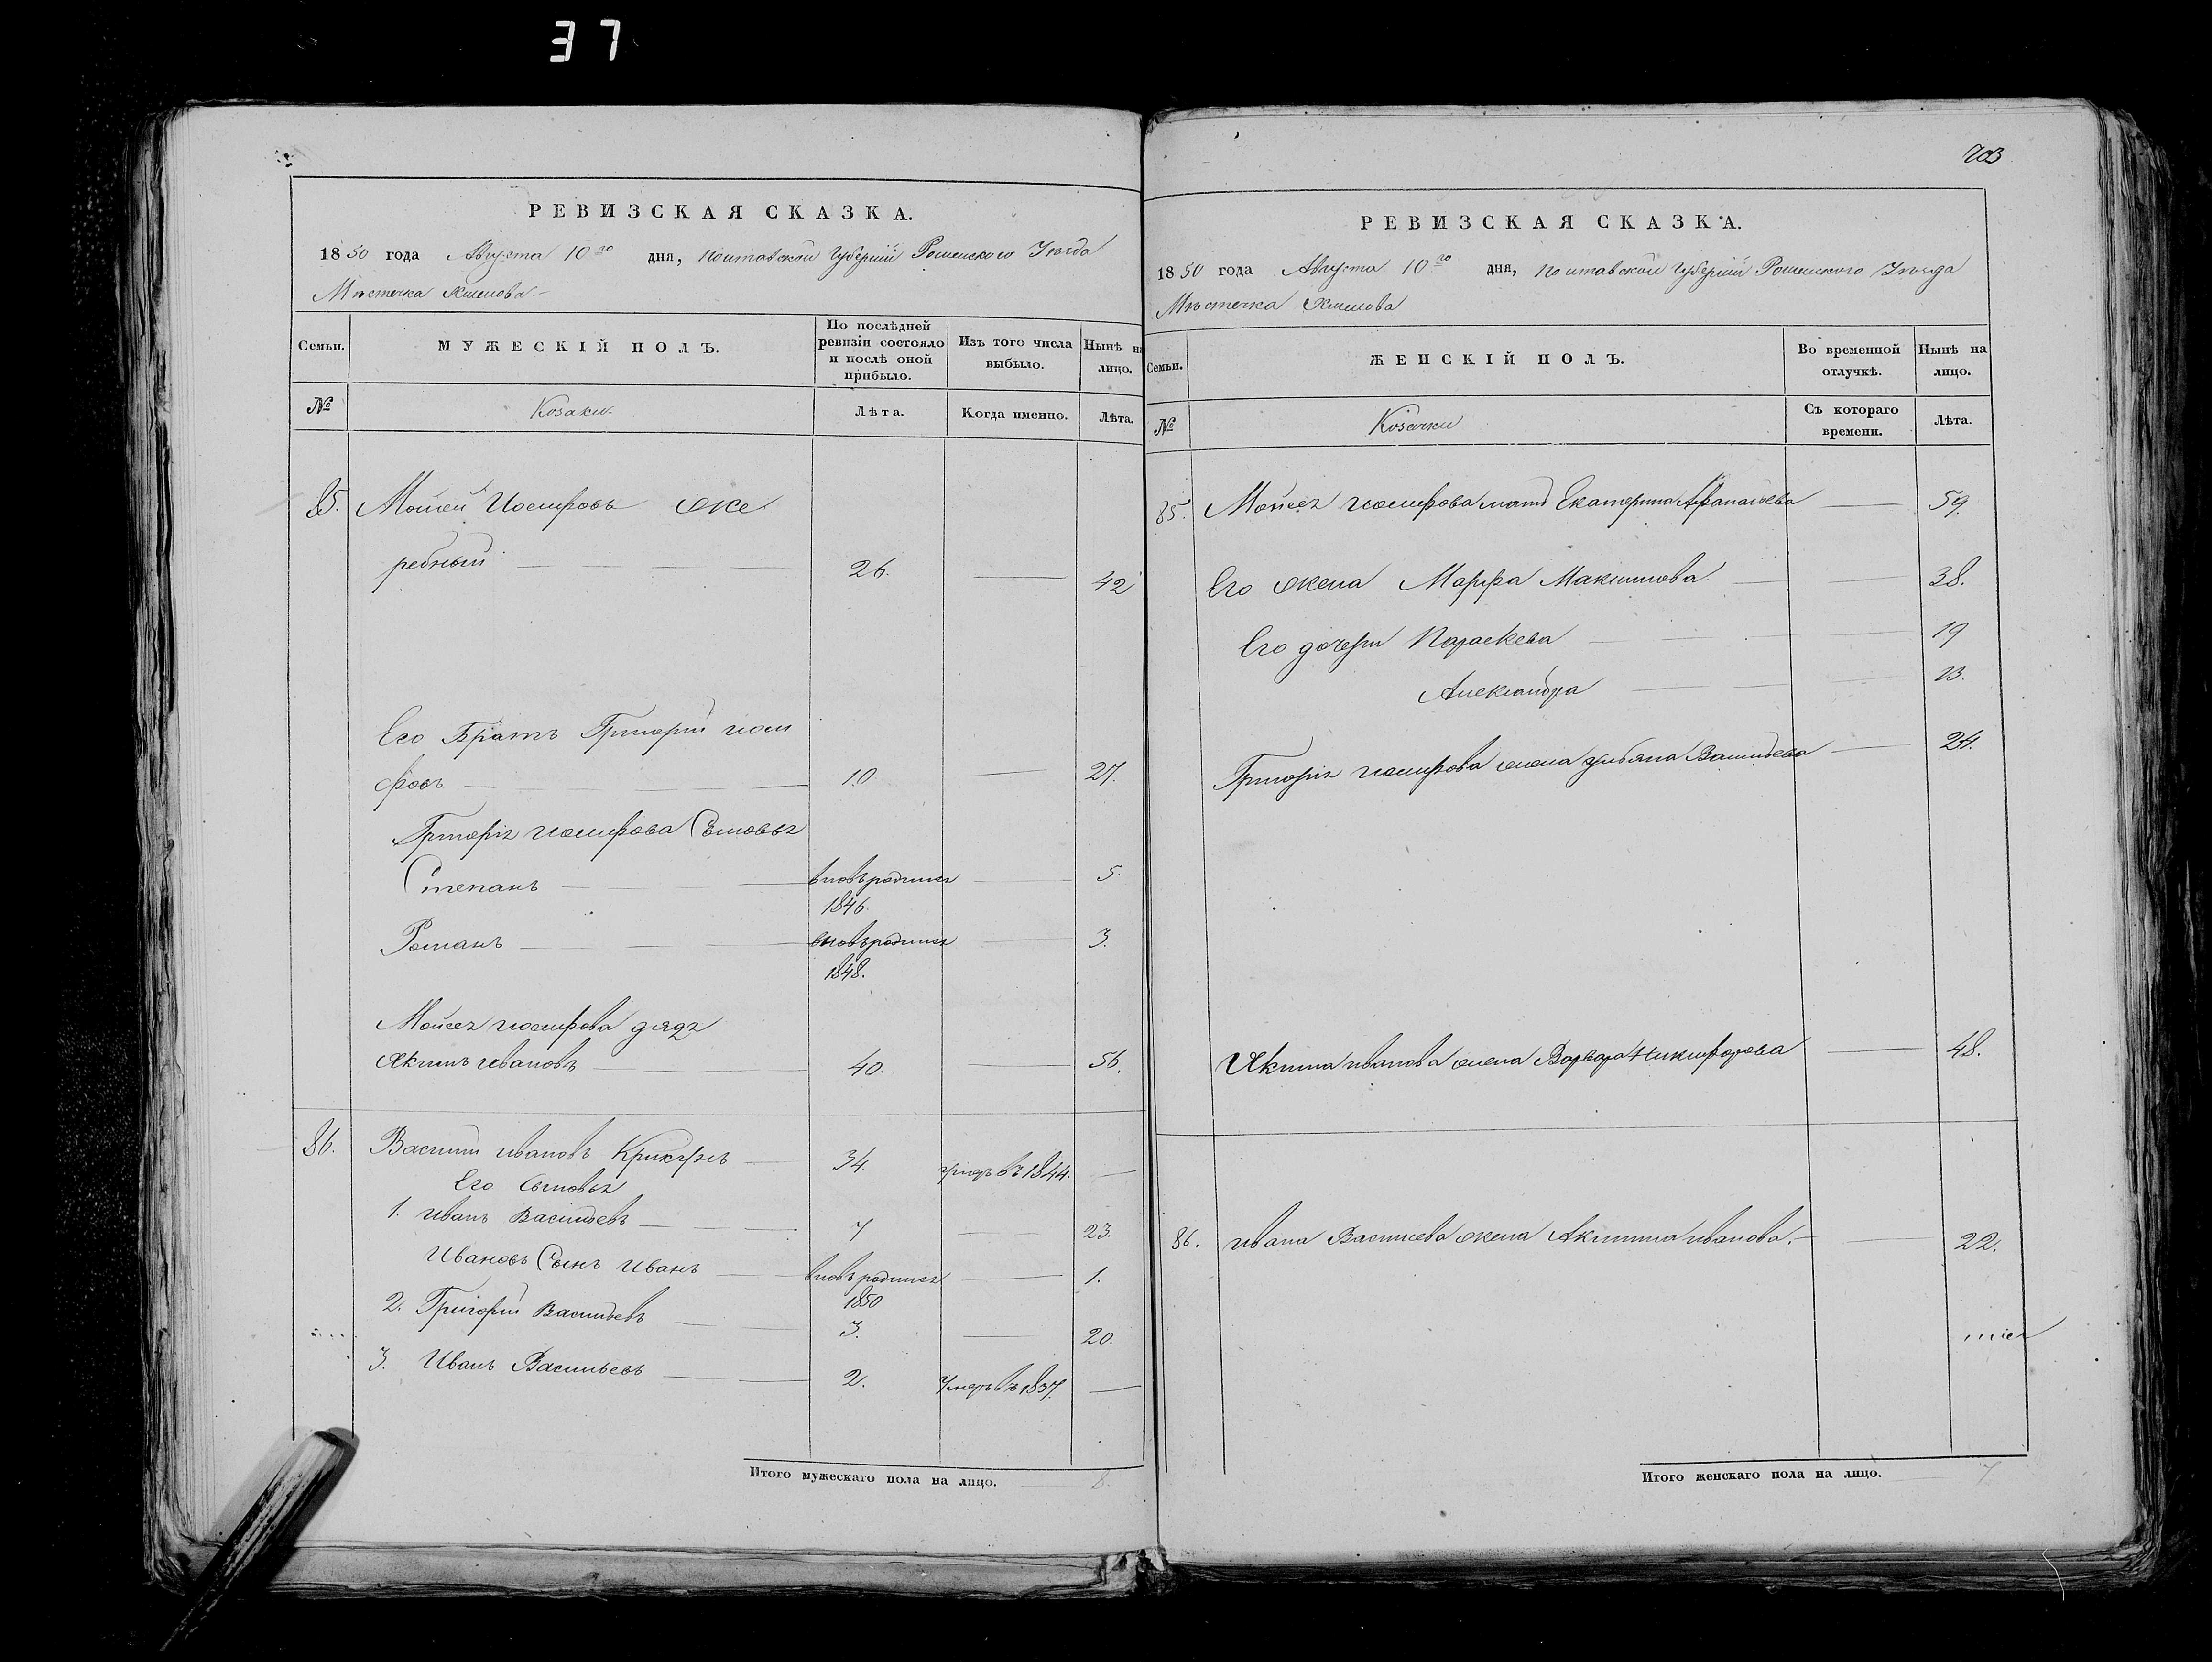 37
РЕВИЗСКАЯ СКАЗКА.
1850 года Августа 10го дня, Полтавской Губерніи Роменского Уѣзда
Мѣстечка Хмелова.
Семьи. МУЖЕСКІЙ ПОЛЪ. По послѣдней ревизіи состояло и послѣ оной прибыло. Изъ того числа выбыло. Нынѣ на лицо.
№ Козаки. Лѣта. Когда именно. Лѣта.
85. Мойсей Иосифовъ Же
ребный 26. 42
Его Братъ Григорій Иоси
фовъ 10. 27.
Григорія Иосифова Сыновья
Степанъ вновь родился 5.
1846.
Романъ вновь родился 3.
1848.
Мойсея Иосифова дядя
Якимъ Ивановъ 40. 56.
86. Василій Ивановъ 34. умеръ въ 1844.
Его Сыновья
1. Иванъ Васильевъ 7. 23.
Ивановъ Сынъ Иванъ вновь родился 1.
1850
2. Григорій Васильевъ 3. 20.
3. Иванъ Васильевъ 2. Умеръ въ 1837.
Итого мужескаго пола на лицо. 8.
703
РЕВИЗСКАЯ СКАЗКА.
1850 года Августа 10го дня, Полтавской Губерніи Роменского Уѣзда
Мѣстечка Хмелова
Семьи. ЖЕНСКІЙ ПОЛЪ. Во временной отлучкѣ. Нынѣ на лицо.
№ Козачки Съ котораго времени. Лѣта.
85. Мойсея Иосифова мать Екатерина Афанасьева 59.
Его жена Марфа Максимова 38.
Его дочери Параскева 19
Александра 13.
Григорія Иосифова жена Ульяна Васильева 24.
Якима Иванова жена Варвара Никифорова 48.
86. Ивана Василиева жена Акилина Иванова. 22.
Итого женскаго пола на лицо. 7